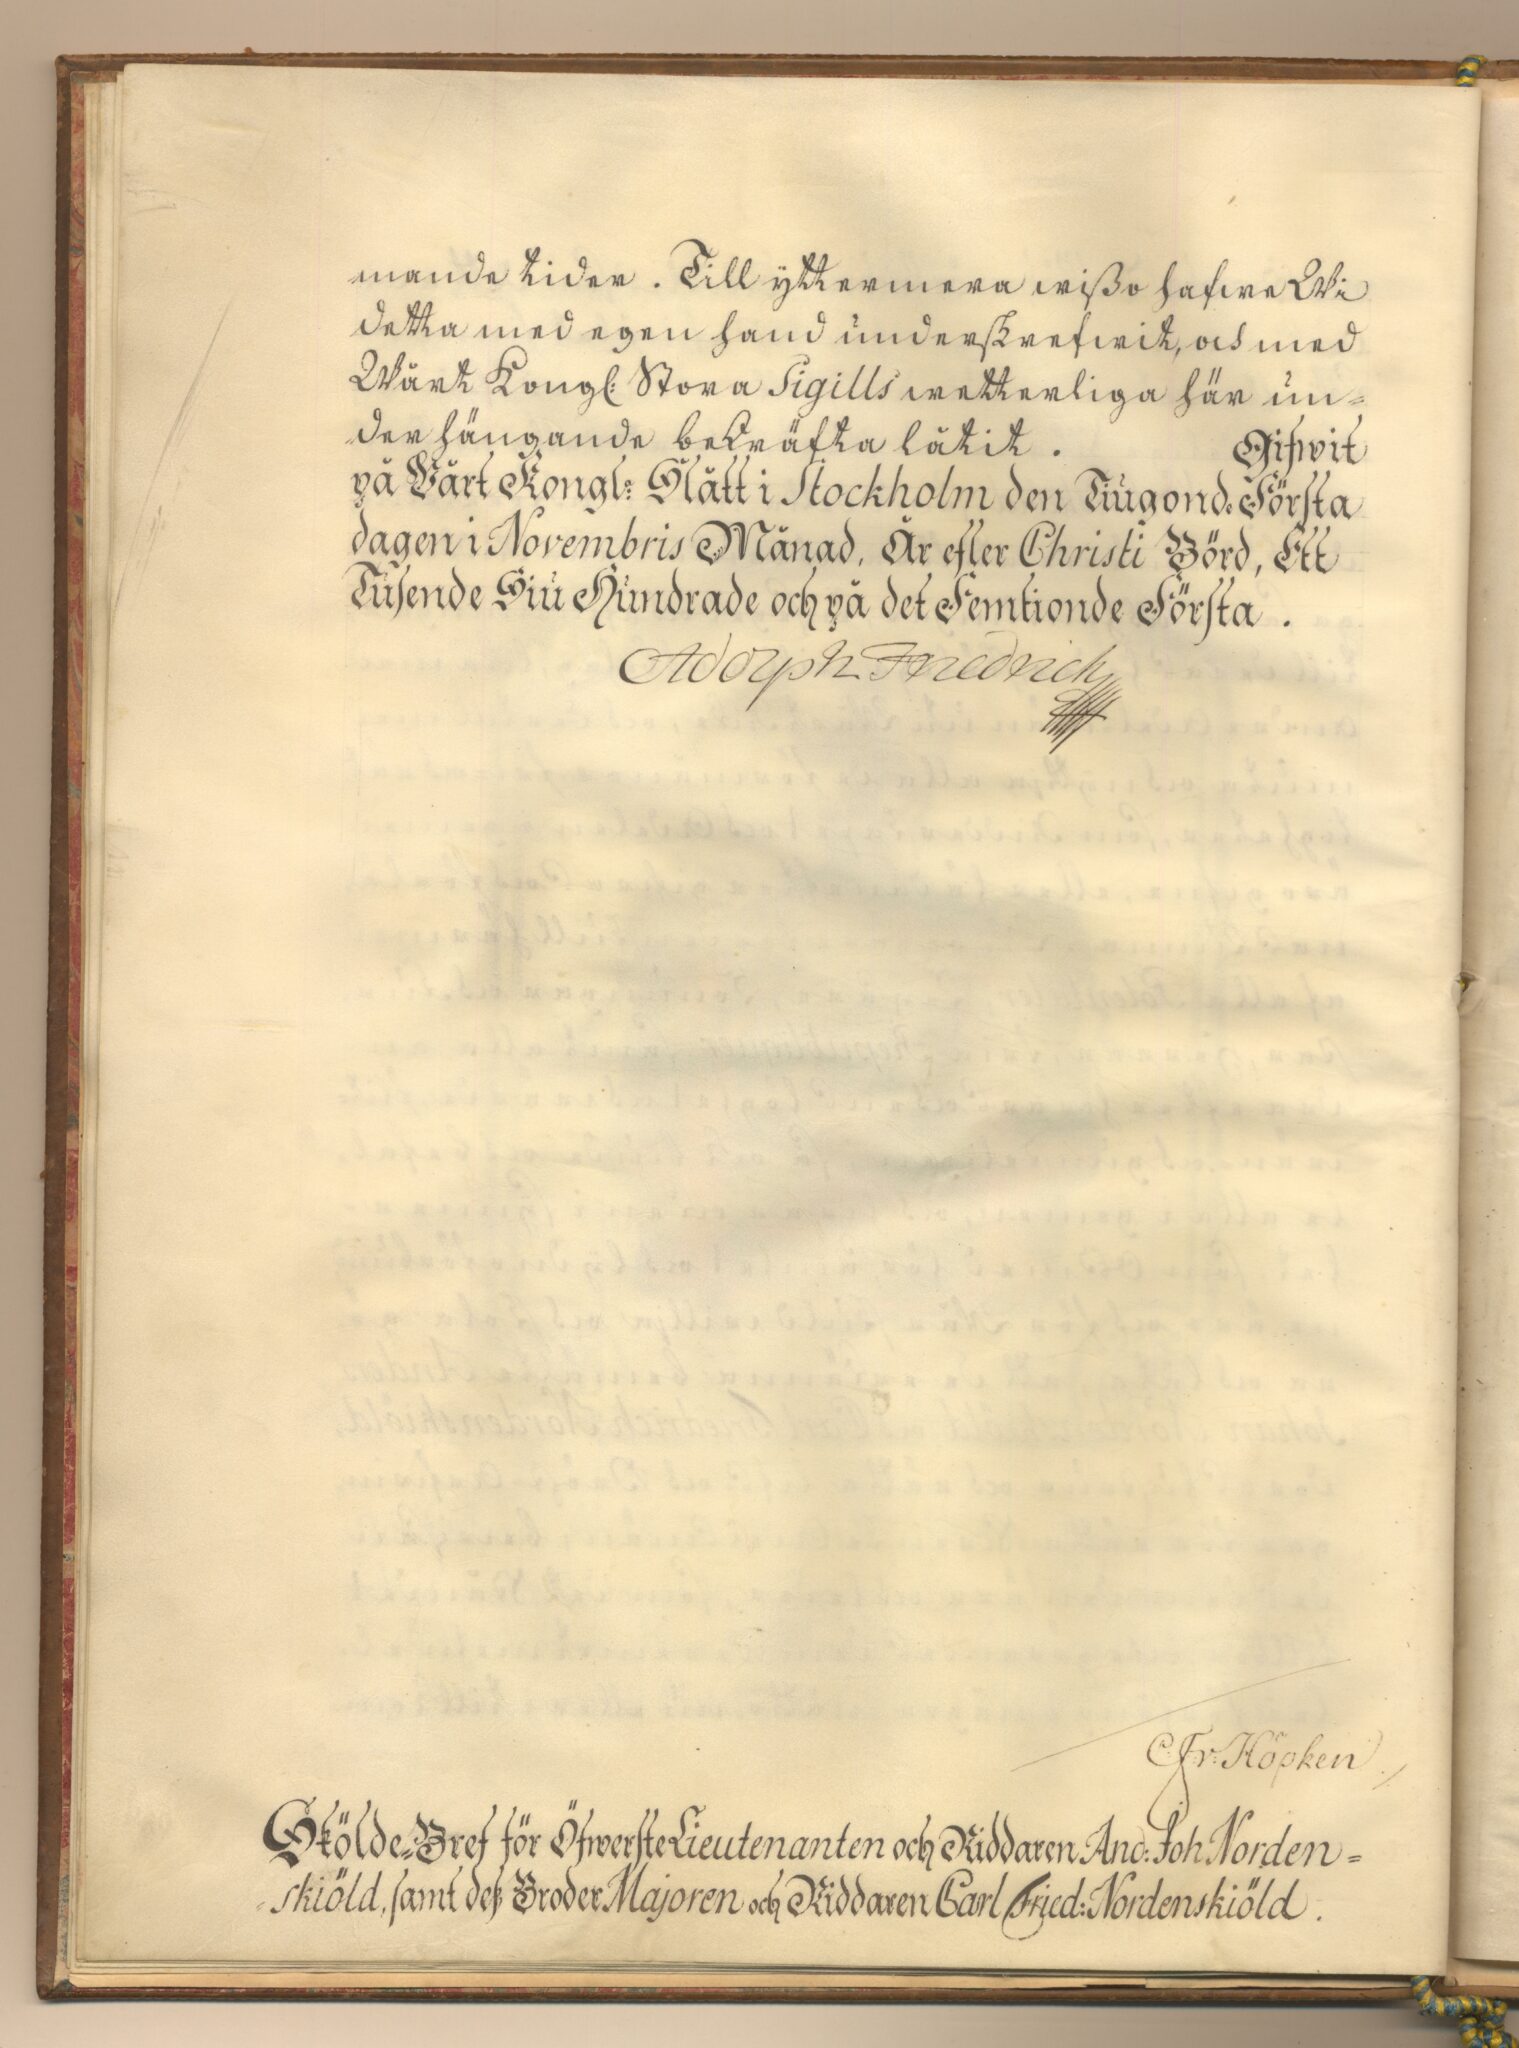 mande tider. Till yttermera wißo hafwe Wi
detta med egen hand underskrefwit, och med
Wårt Kongl: Stora Sigills wetterliga här un=
der hängande bekräfta låtit. Gifwit
på Vårt Kongl: Slått i Stockholm den Tiugond: Första
dagen i Novembris Månad, År efter Christi Börd, Ett
Tusende Siu Hundrade och på det Femtionde Första.
Adolph Friedrich
C: Fr: Höpken
Skölde=Bref för Öfwerste Lieutenanten och Riddaren And: Joh Norden=
=skiöld, samt deß Broder Majoren och Riddaren Carl Fried: Nordenskiöld.